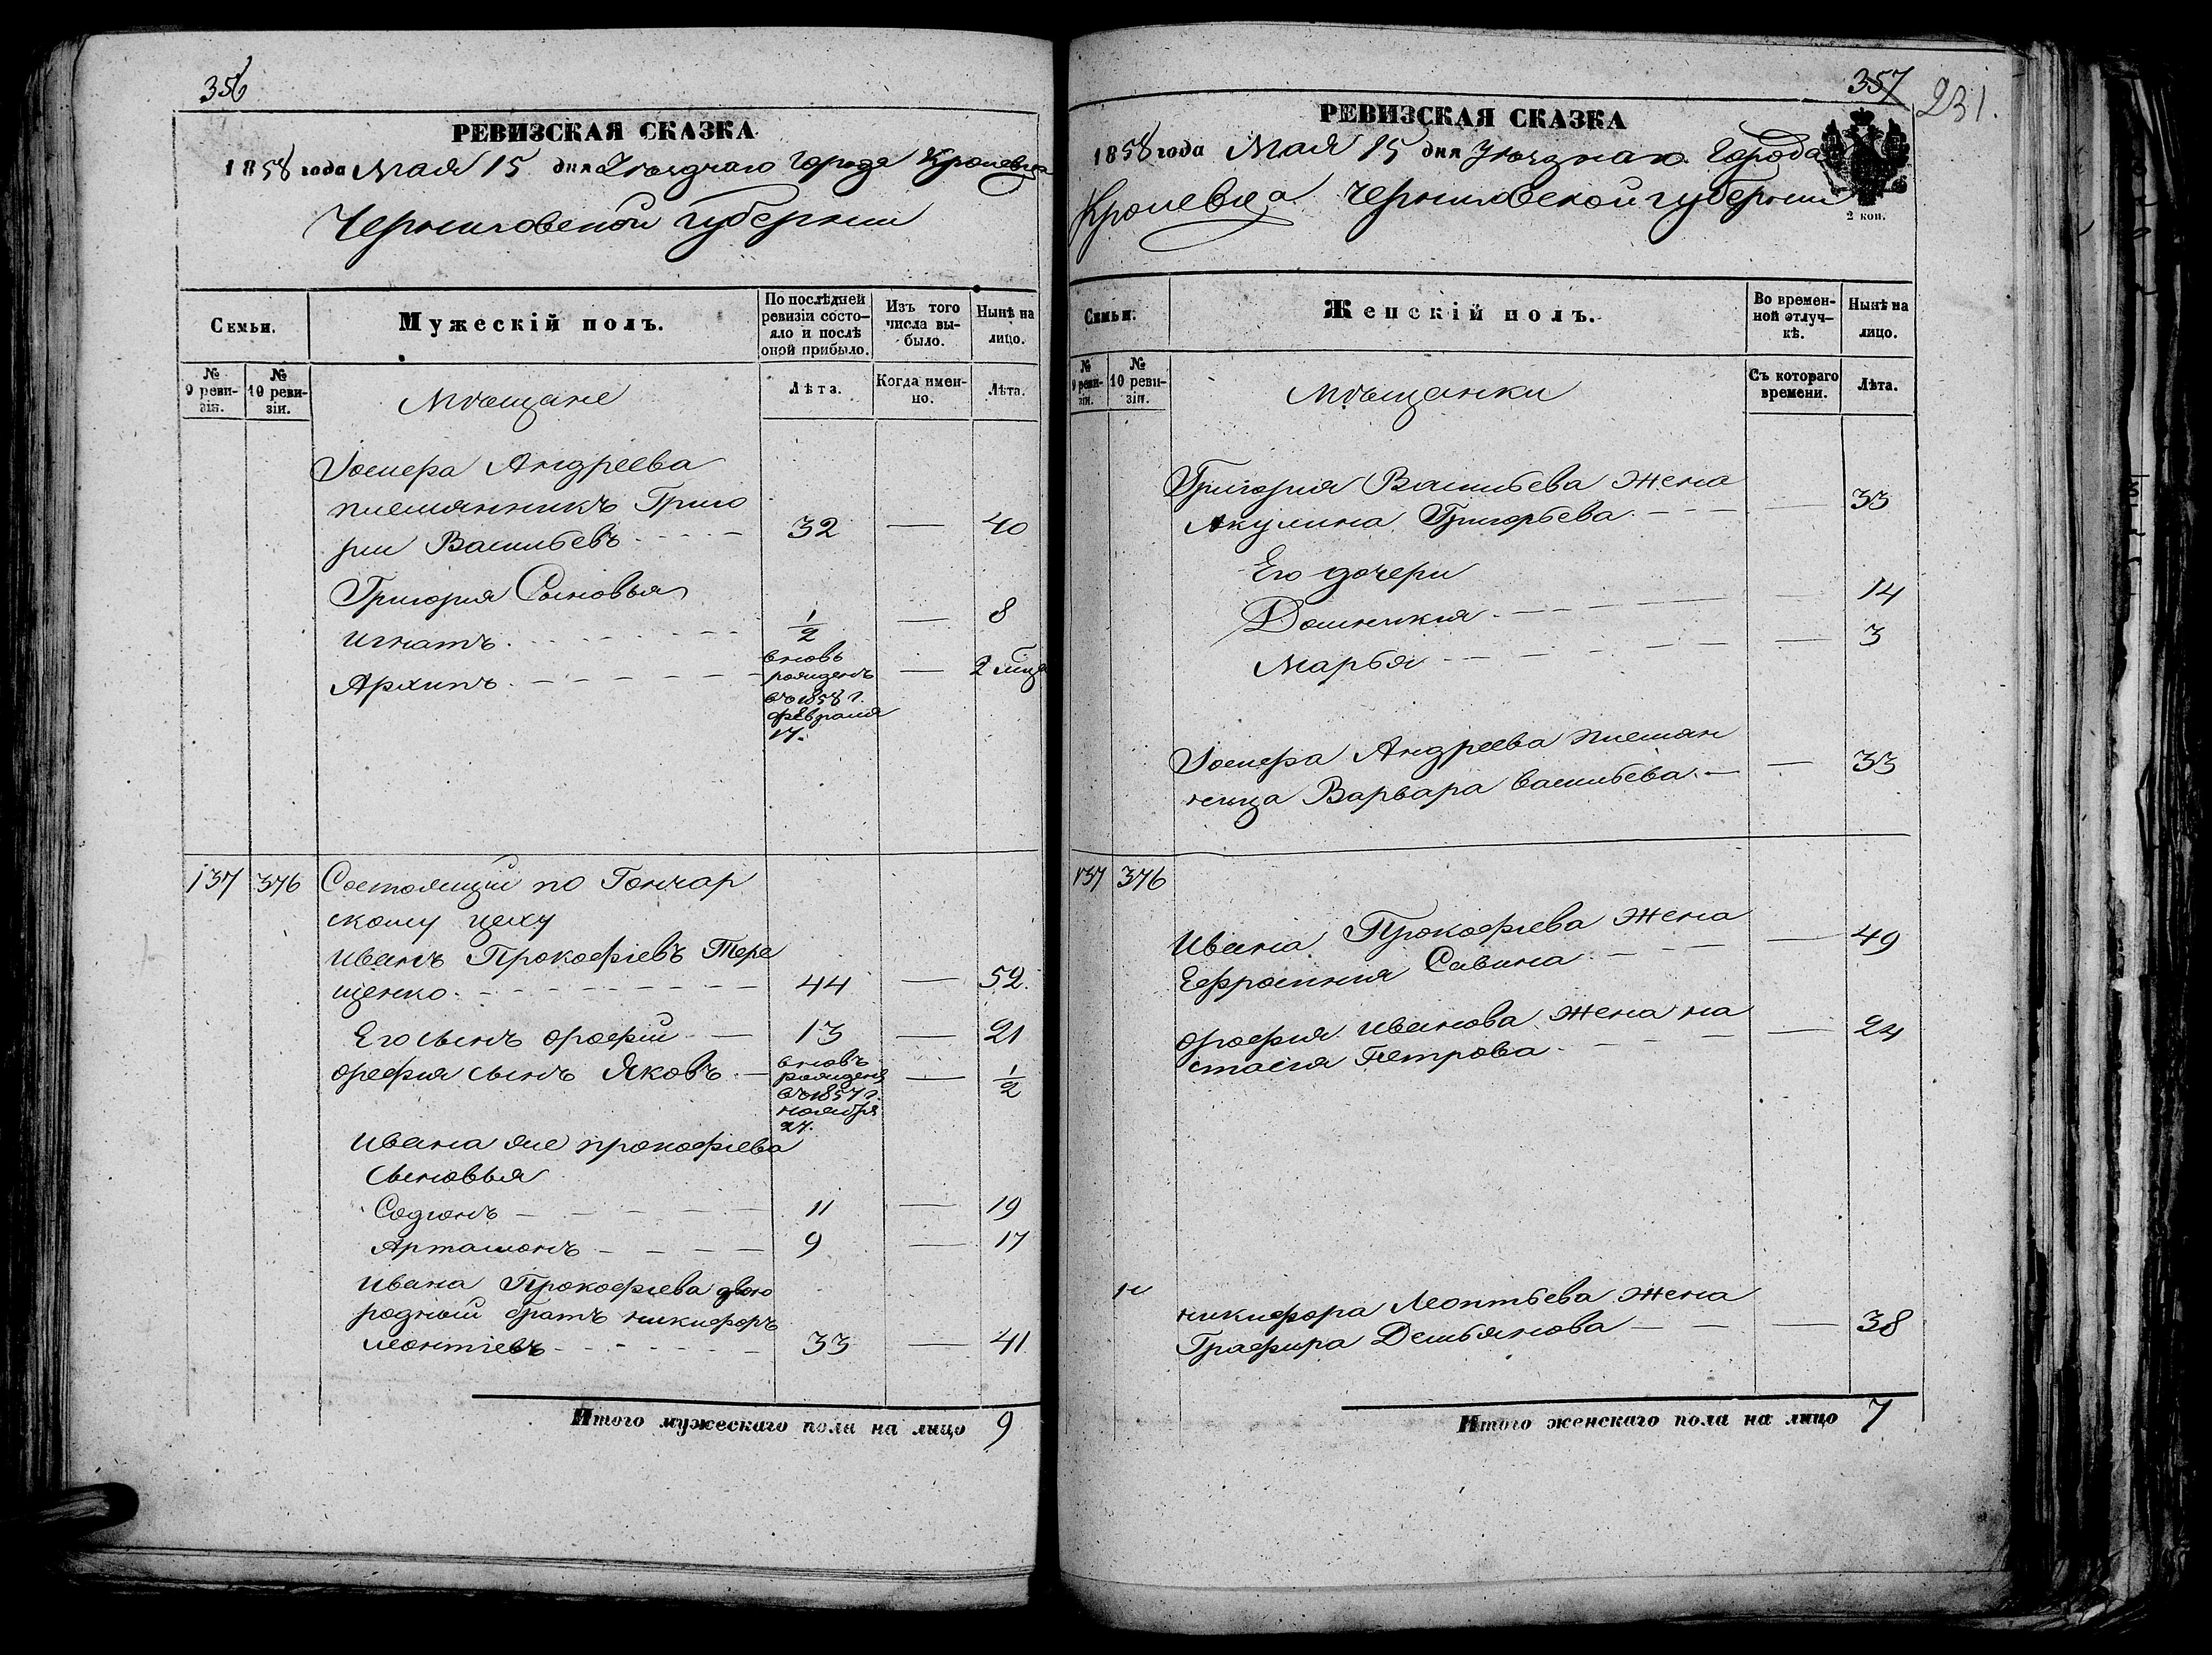 356
РЕВИЗСКАЯ СКАЗКА
1858 года Мая 15 дня Уѣзднаго Города Кролевца
Черниговской Губернии
Семьи.
Мужескій полъ.
По послѣдней ревизіи состояло и послѣ оной прибыло.
Изъ того числа выбыло.
Нынѣ на лицо.
№ 9 ревизіи.
№ 10 ревизіи.
Мѣщане
Лѣта.
Когда именно.
Лѣта.
Іосифа Андреева
племянникъ Григо
рий Васильевъ 32 — 40
Григория Сыновья
Игнатъ 1/2 — 8
Архипъ вновь рожденъ въ 1858 г. февраля 17. — 2 мѣся
137 376 Состоящий по Гончар
скому цеху
Иванъ Прокофіевъ Тере
щенко 44 — 52.
Его сынъ Орефій 13 — 21
Орефия сынъ Яковъ вновь рожденъ въ 1857 г. ноября 27. — 1/2
Ивана же Прокофіева
Сыновья
Содгонъ 11 — 19
Артамонъ 9 — 17
Ивана Прокофіева двою
родный братъ Никифоръ
Леонтіевъ 33 — 41
Итого мужескаго пола на лицо 9
357
231.
РЕВИЗСКАЯ СКАЗКА
1858 года Мая 15 дня Уѣзднаго Города
Кролевца Черниговской губернии
2 коп.
Семьи.
Женскій полъ.
Во временной отлучкѣ.
Нынѣ на лицо.
№ 9 ревизіи.
№ 10 ревизіи.
Мѣщанки
Съ котораго времени.
Лѣта.
Григория Васильева жена
Акулина Григорьева — 33
Его дочери
Домникия — 14
Марья — 3
Іосифа Андреева племян
ница Варвара Васильева — 33
137 376
Ивана Прокофіева жена
Ефросиния Савина — 49
Орефия Иванова жена На
стасія Петрова — 24
Никифора Леонтьева жена
Графира Демьянова — 38
Итого женскаго пола на лицо 7